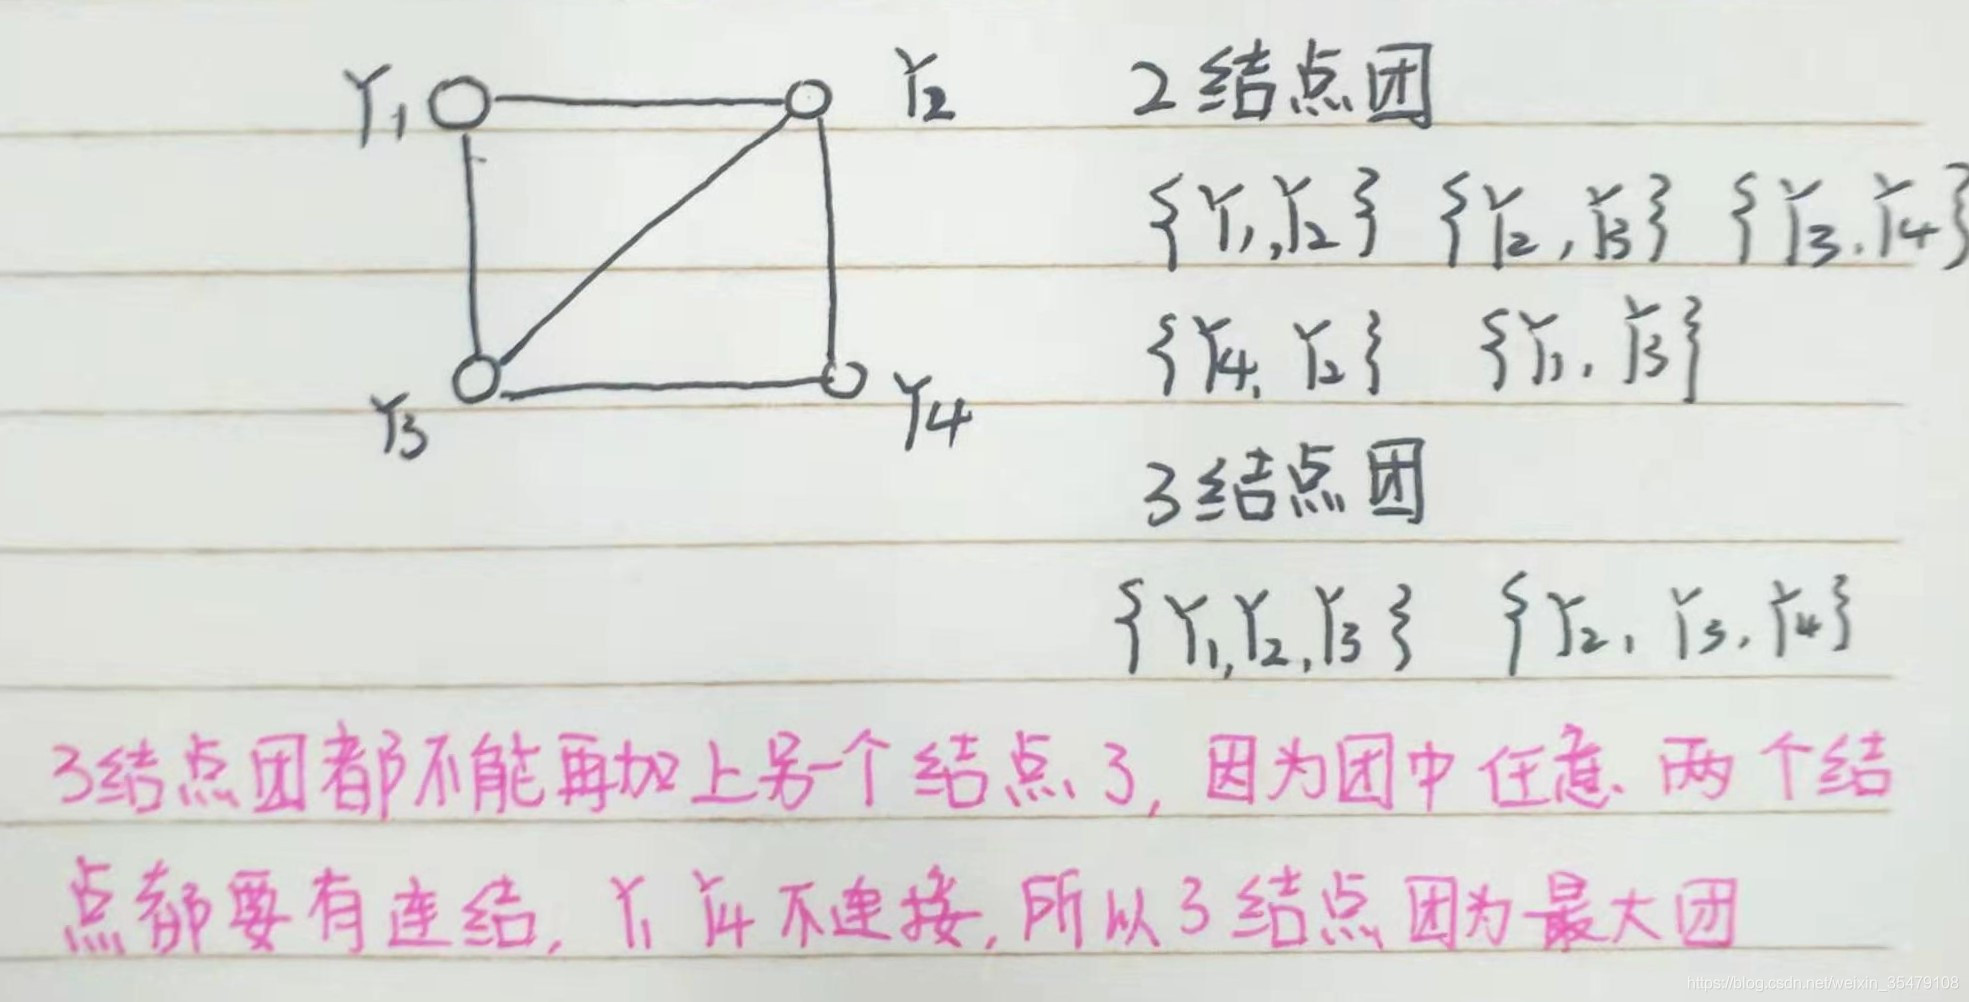 Y1
Y2
Y3
Y4
2结点团
{Y1,Y2} {Y2,Y3} {Y3.Y4}
{Y4,Y2} {Y1,Y3}
3结点团
{Y1,Y2,Y3} {Y2,Y3,Y4}
3结点团都不能再加上另一个结点了,因为团中任意两个结
点都要有连结,Y1 Y4不连接,所以3结点团为最大团
https://blog.csdn.net/weixin_35479108